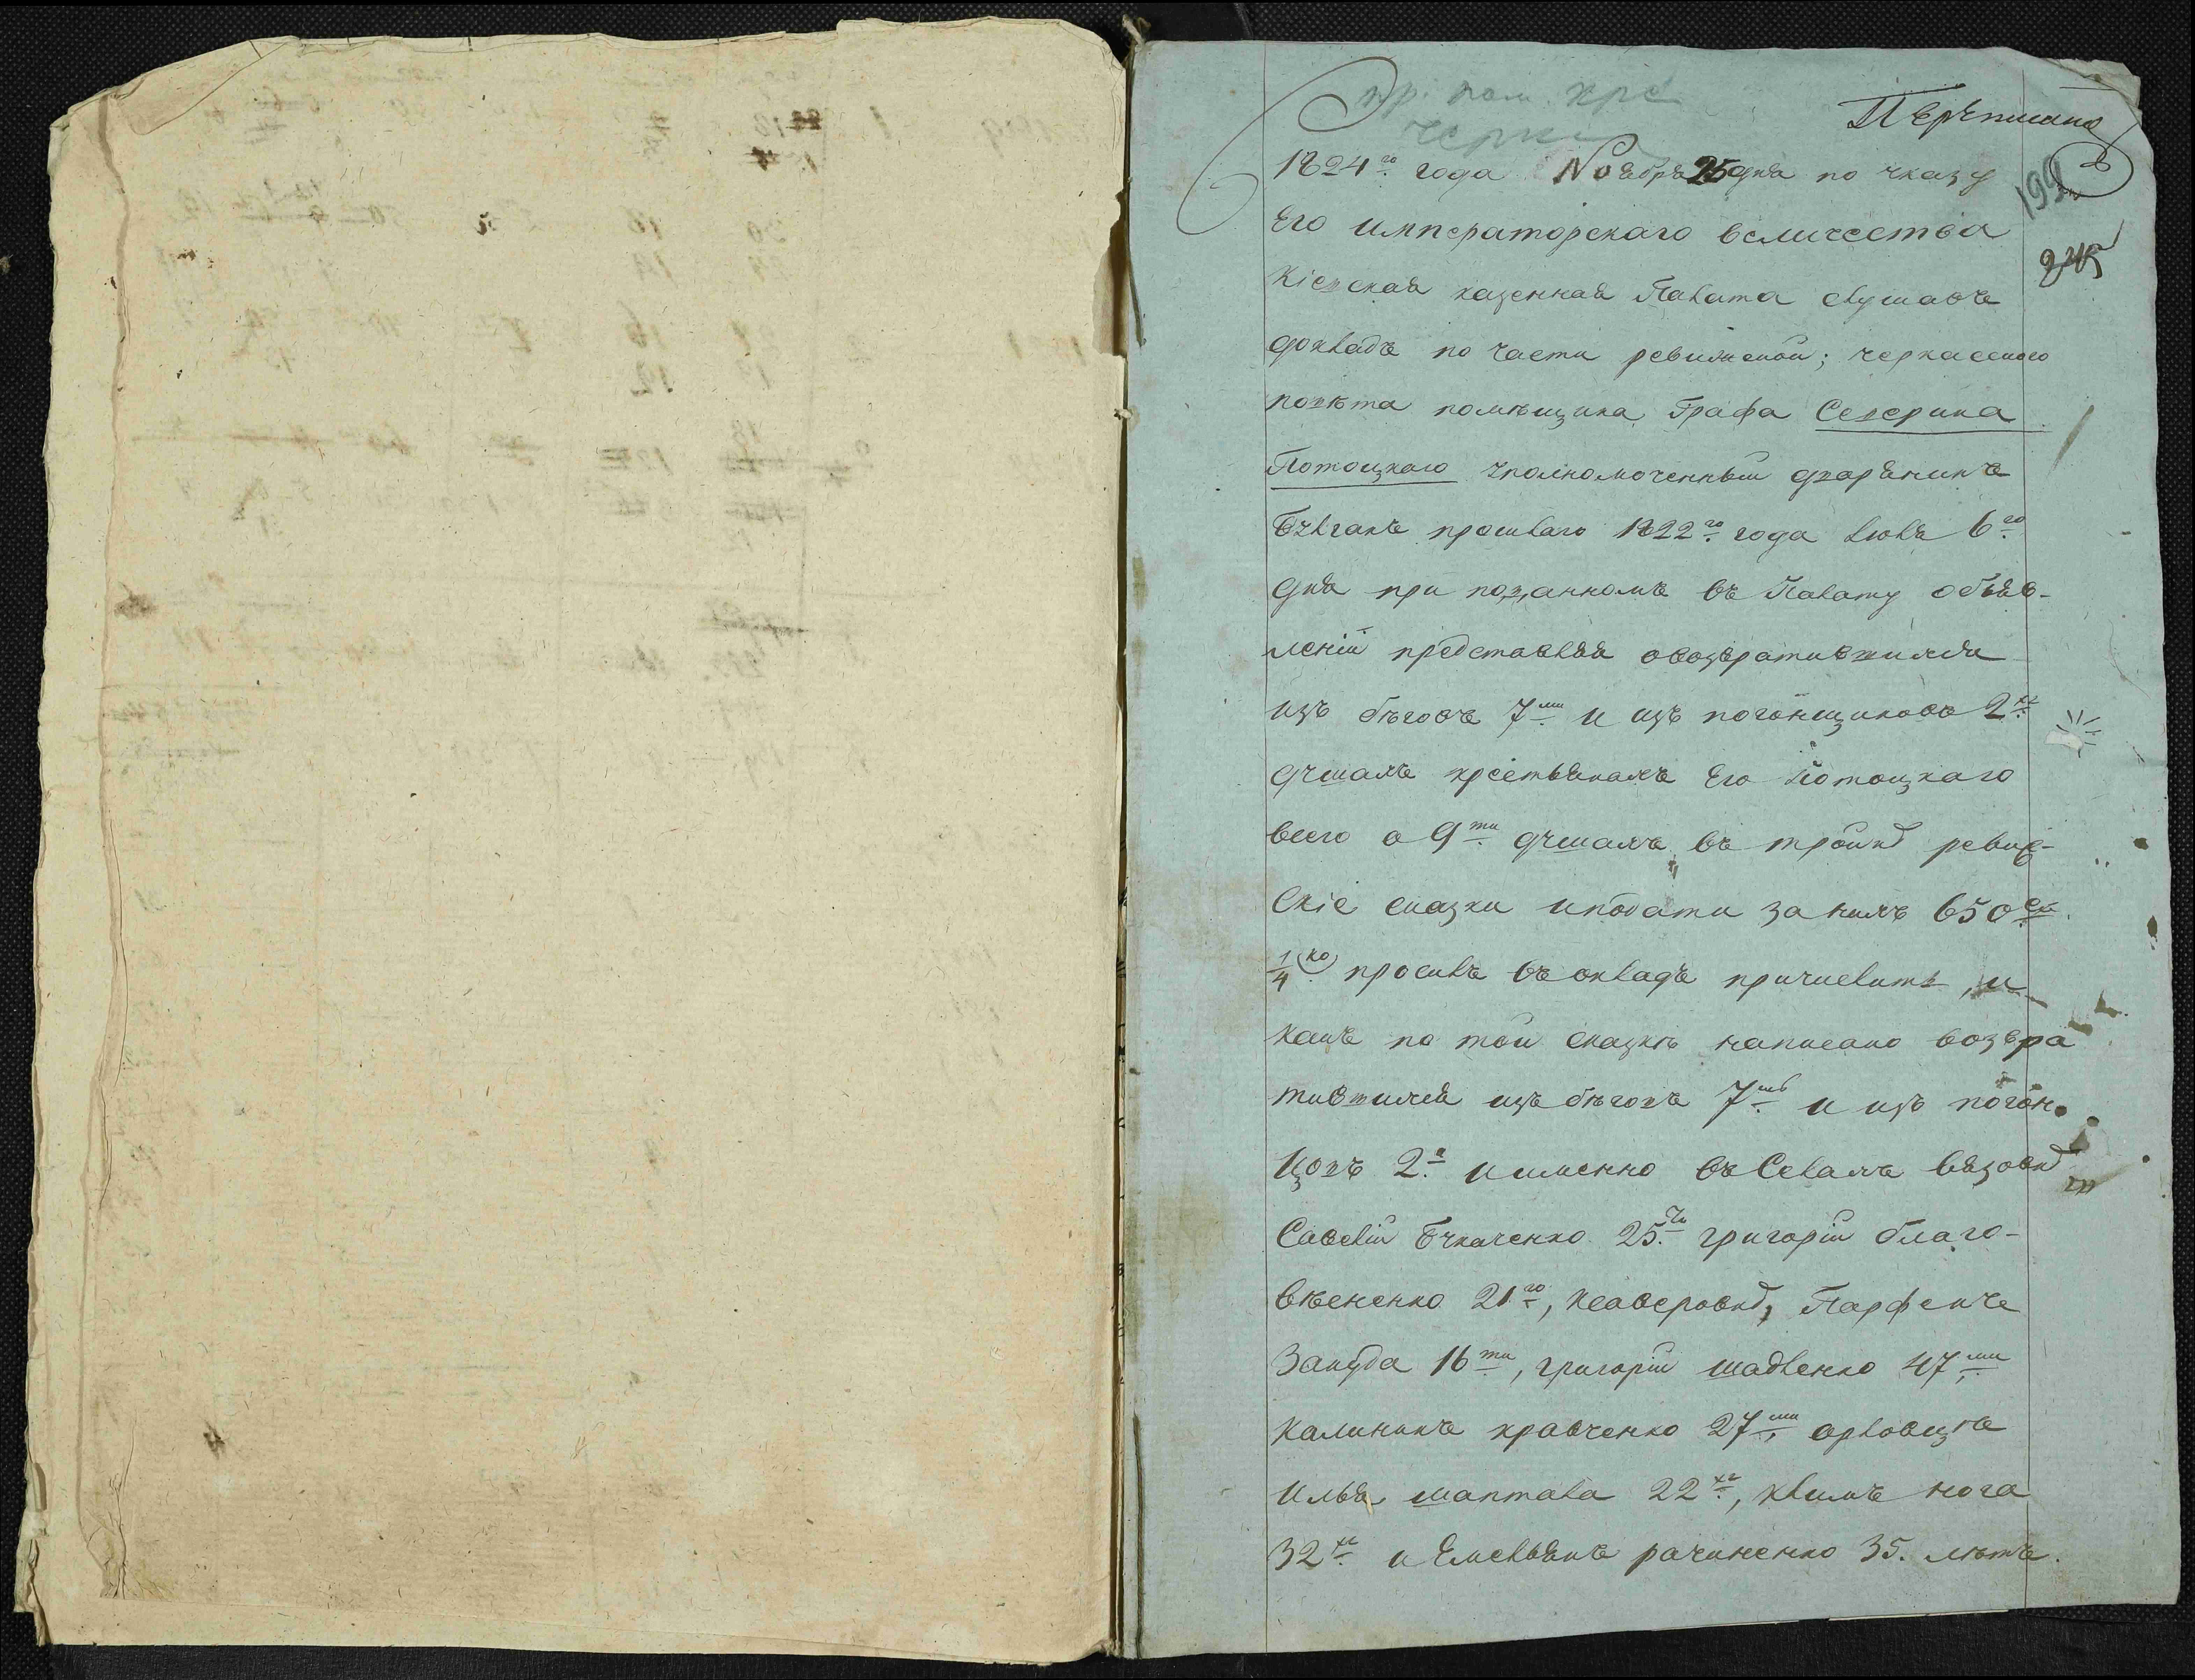 пр. пом. кре
черк
Переписано
199
245
1824го года Ноября 25 дня по указу
Его императорскаго величества
Кіевская казенная Палата слушавъ
докладъ по части ревижской; черкасскаго
повѣта помѣщика Графа Северина
Потоцкаго уполномоченный дворянинъ
прошлаго 1822го года Іюля 6го
дня при поданномъ въ Палату объяв-
леніи представляя овозвратившихся
изъ бѣговъ 7ми и изъ погонщиковъ 2хъ
душахъ крестьянахъ Его Потоцкаго
всего о 9ти душахъ въ тройнѣ ревиз-
скіе сказки иподати за нихъ 650
1/4 ко просилъ въ окладъ причислить, и
какъ по той сказкѣ написано возвра
тившихся изъ бѣговъ 7мь и изъ погон
цовъ 2а иименно въ Селахъ Вязовкѣ
Савелій Ткаченко 25ти григорій благо-
вѣсненко 21го, Ксаверовкѣ, Парфенъ
Зануда 16ти, григорій шадленко 47ми,
Калиникъ кравченко 27ми, орловцѣ
илья шаптала 22хъ, климъ нога
32хъ и Емельянъ рачиненко 35. лѣтъ.